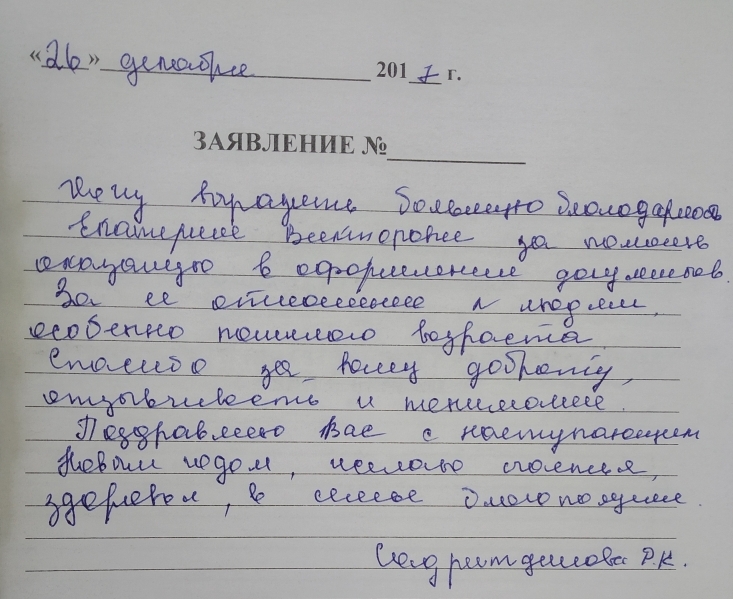 «26» декабря 2017 г.
ЗАЯВЛЕНИЕ №
Хочу выразить большую благодарность
Екатерине Викторовне за помощь
оказанную в оформлении документов.
За ее отношение к людям,
особенно пожилого возраста.
Спасибо за вашу доброту,
отзывчивость и понимание.
Поздравляю Вас с наступающим
Новым годом, желаю счастья,
здоровья, в семье благополучие.
Р.К.